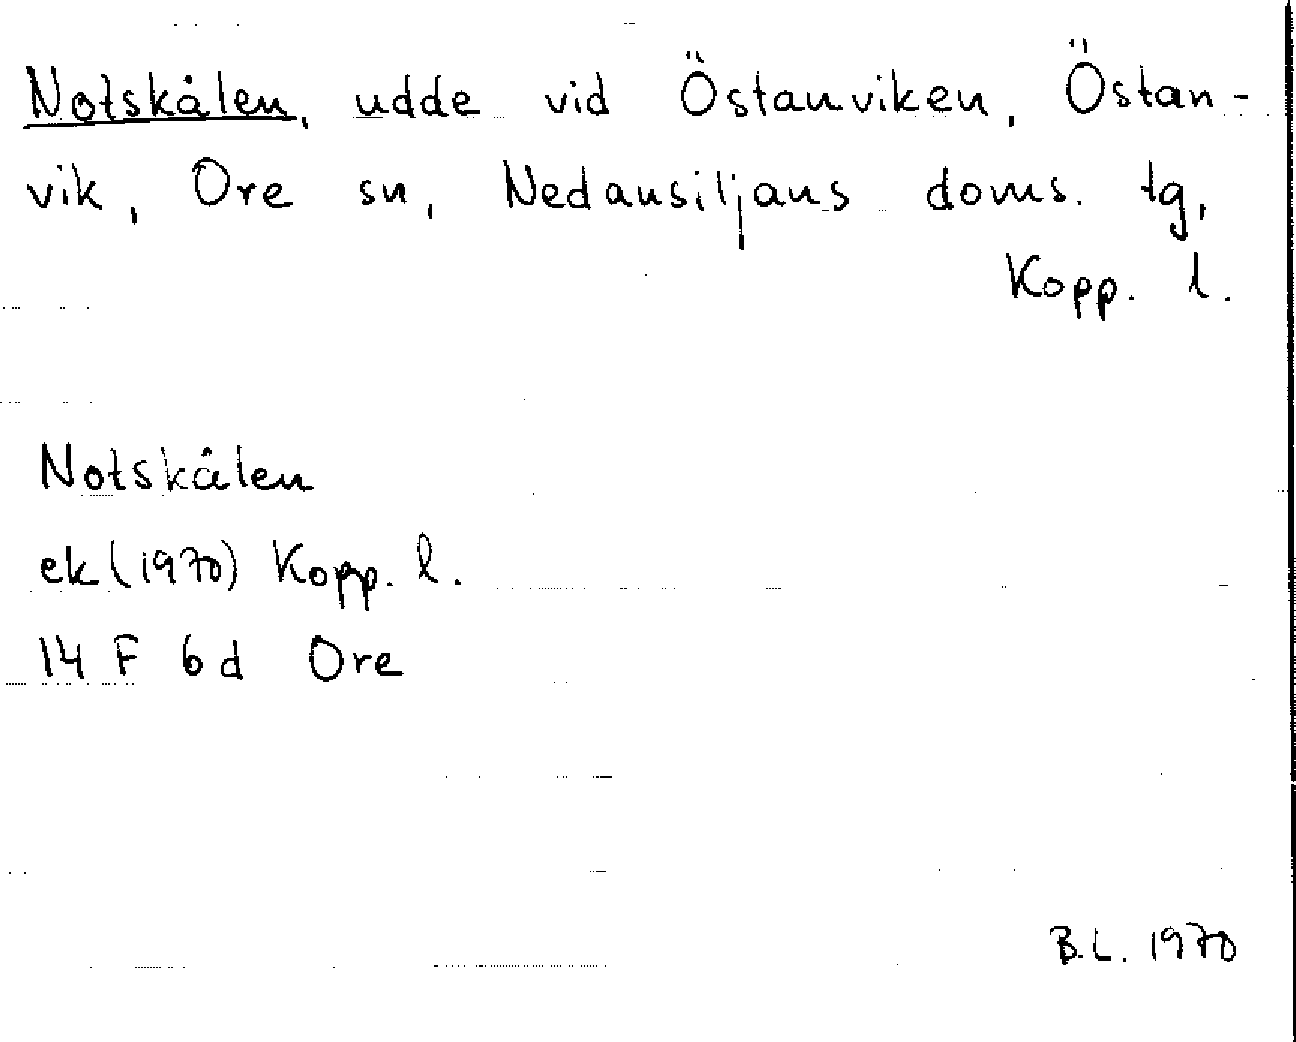 Notskålen, udde vid Östanviken, Östan-
vik, Ore sn, Nedansiljans doms. tg,
Kopp. l.
Notskålen
ek (1970) Kopp. l.
14 F 6d Ore
B.L. 1970